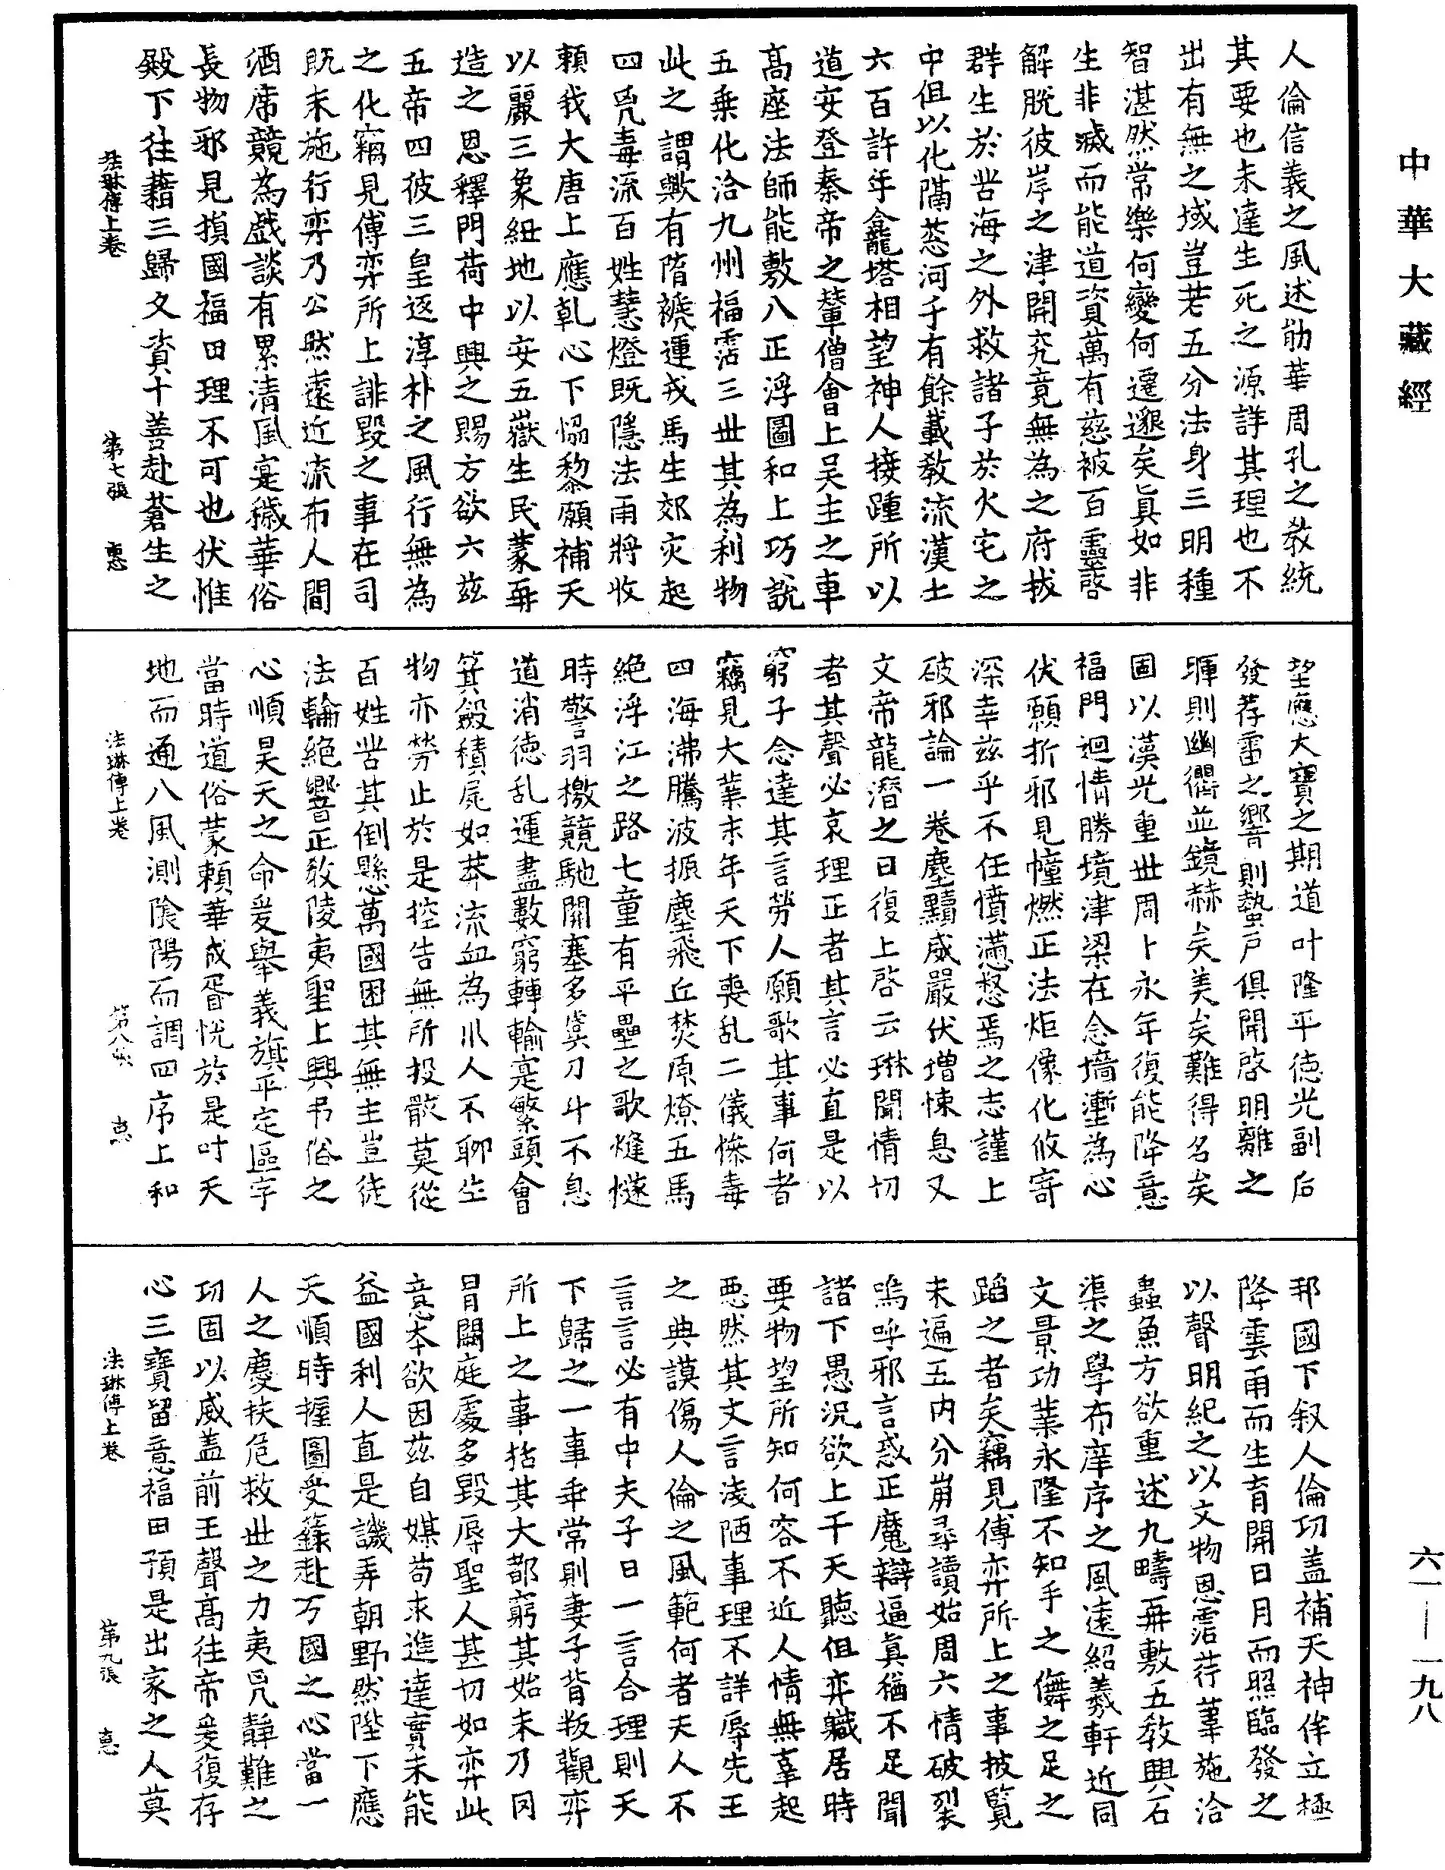 中華大藏經
人倫信義之風述勛華周孔之教統
其要也未達生死之源詳其理也不
出有無之域豈若五分法身三明種
智湛然常樂何變何遷邈矣真如非
生非滅而能道資萬有慈被百靈啓
解脫彼岸之津開究竟無為之府拔
群生於苦海之外救諸子於火宅之
中但以化隔葱河千有餘載教流漢土
六百許年龕塔相望神人接踵所以
道安登秦帝之輦僧會上吴主之車
高座法師能敷八正浮圖和上巧說
五乘化洽九州福霑三世其為利物
此之謂歟有隋撫運戎馬生郊灾起
四兇毒流百姓慧燈既隱法雨將收
賴我大唐上應乹心下愶黎願補天
以麗三象紐地以安五嶽生民蒙再
造之恩釋門荷中興之賜方欲六茲
五帝四彼三皇返淳朴之風行無為
之化竊見傅弈所上誹毀之事在司
既未施行弈乃公然遠近流布人間
酒席競為戲談有累清風寔穢華俗
長物邪見損國福田理不可也伏惟
殿下往藉三歸文資十善赴蒼生之
法琳傳上卷 第七張 惠
望應大寶之期道叶隆平德光副后
發荐雷之響則蟄戶俱開啓明離之
暉則幽衢並鏡赫矣美矣難得名矣
固以漢光重世周卜永年復能降意
福門迴情勝境津梁在念墻壍為心
伏願折邪見幢燃正法炬像化攸寄
深幸茲乎不任憤懣慇焉之志謹上
破邪論一卷塵黷威嚴伏增悚息又
文帝龍潛之日復上啓云琳聞情切
者其聲必哀理正者其言必直是以
窮子念達其言勞人願歌其事何者
竊見大業末年天下喪乱二儀慘毒
四海沸騰波振塵飛丘焚原燎五馬
絕浮江之路七童有平壘之歌燧
時警羽檄競馳關塞多虞刀斗不息
道消德乱運盡數窮轉輸寔繁頭會
箕斂積屍如莽流血為川人不聊生
物亦勞止於是控告無所投骸莫從
百姓苦其倒懸萬國困其無主豈徒
法輪絕響正教陵夷聖上興弔俗之
心順昊天之命爰舉義旗平定區宇
當時道俗蒙賴華戎胥悅於是叶天
地而通八風測陰陽而調四序上和
法琳傳上卷 第八張 惠
邦國下叙人倫功蓋補天神侔立極
降雲雨而生育開日月而照臨發之
以聲明紀之以文物恩霑荇葦施洽
蟲魚方欲重述九疇再敷五教興石
渠之學布庠序之風遠紹羲軒近同
文景功業永隆不知手之儛之足之
蹈之者矣竊見傅弈所上之事披覽
未遍五內分崩尋讀始周六情破裂
嗚呼邪言惑正魔辯逼真猶不足聞
諸下愚況欲上干天聽但弈職居時
要物望所知何容不近人情無辜起
惡然其文言淺陋事理不詳辱先王
之典謨傷人倫之風範何者夫人不
言言必有中夫子曰一言合理則天
下歸之一事乖常則妻子背叛觀弈
所上之事括其大都窮其始末乃罔
冒闕庭處多毀辱聖人甚切如弈此
意本欲因茲自媒苟求進達實未能
益國利人直是譏弄朝野然陛下應
天順時握圖受籙赴万國之心當一
人之慶扶危救世之力夷兇靜難之
功固以威蓋前王聲高往帝爰復存
心三寶留意福田預是出家之人莫
法琳傳上卷 第九張 惠
六一—一九八